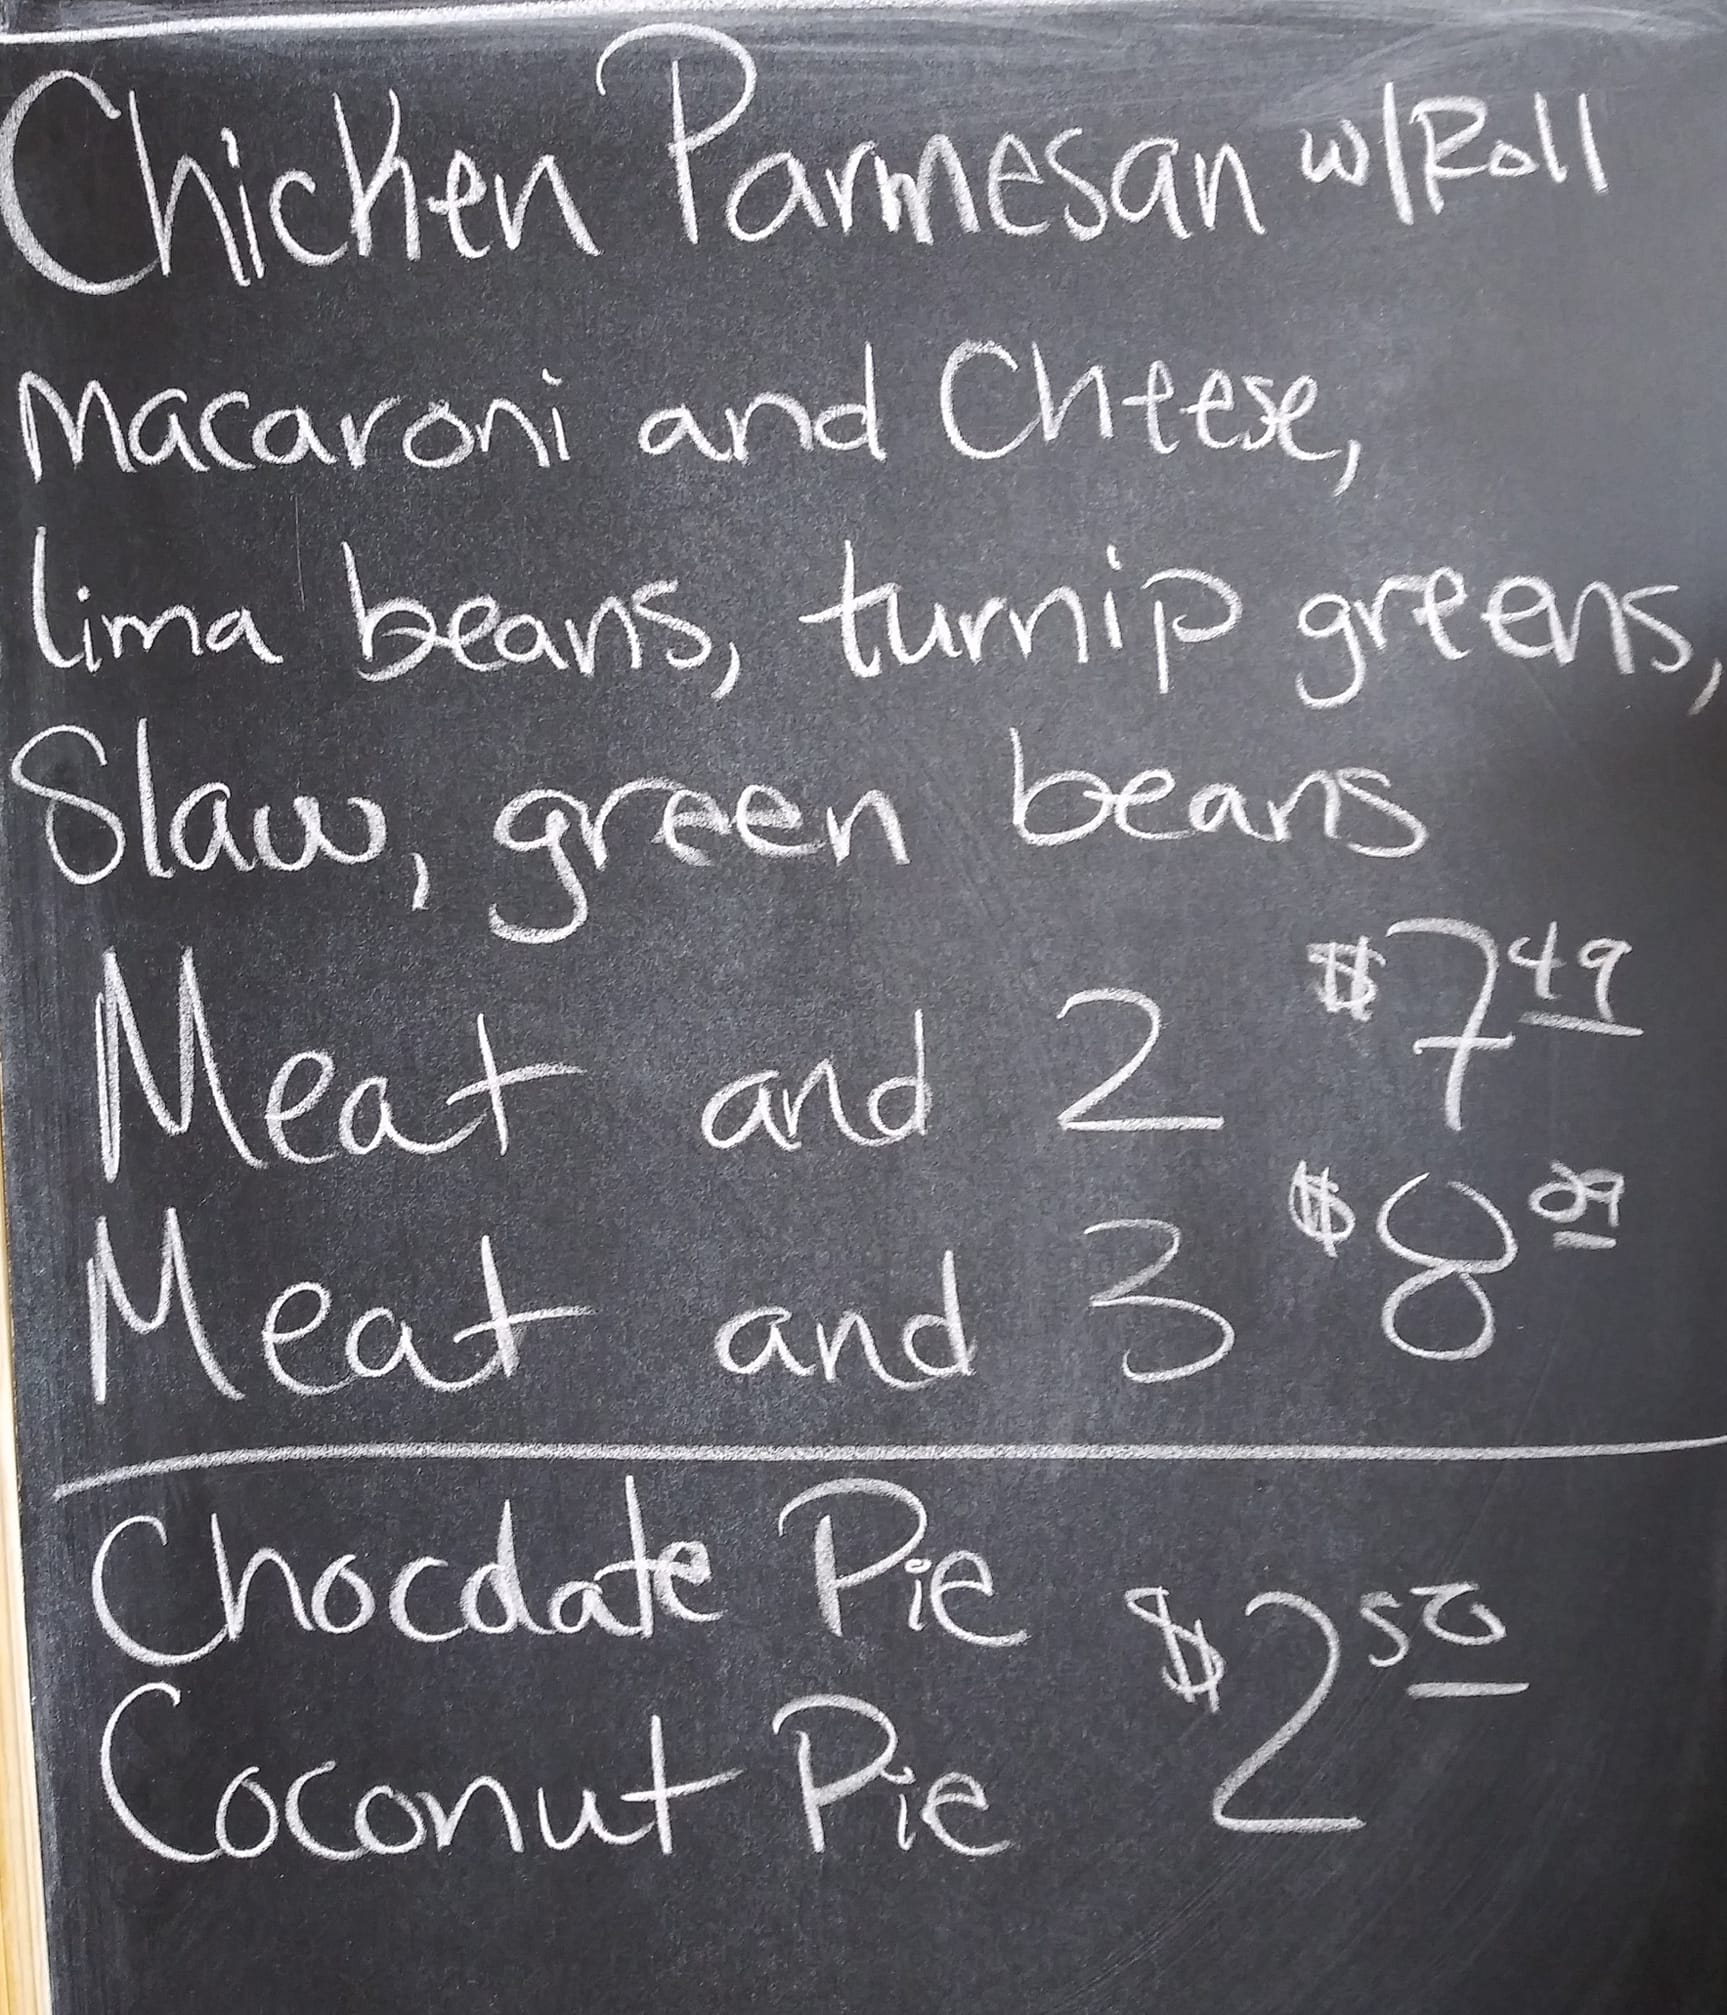 Chicken Parmesan w/Roll
Macaroni and Cheese,
lima beans, turnip greens,
Slaw, green beans
Meat and 2 $7 49
Meat and 3 $8 09
Chocolate Pie $2 50
Coconut Pie